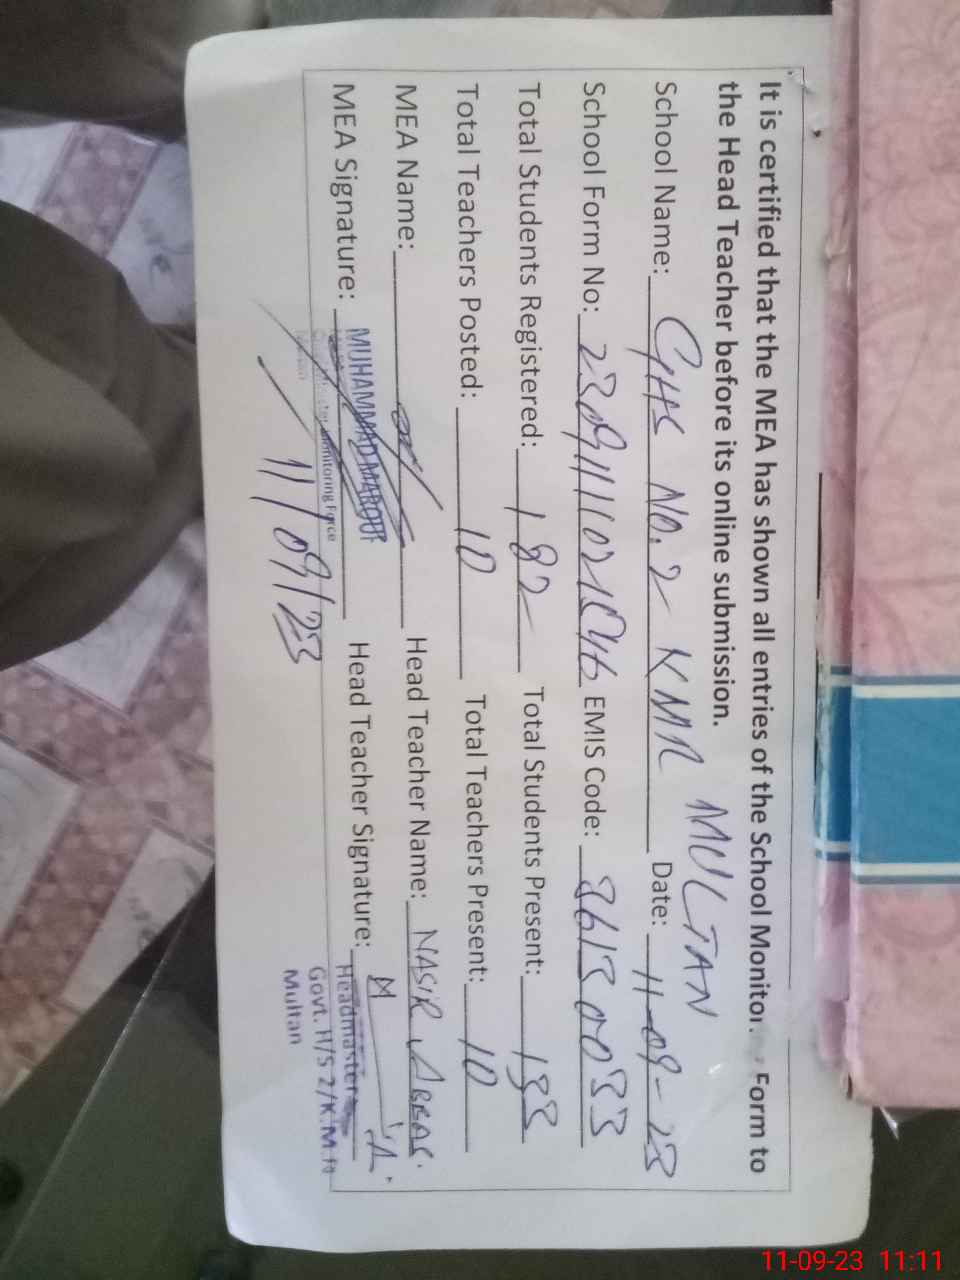 It is certified that the MEA has shown all entries of the School Monitoring Form to
the Head Teacher before its online submission.
MULTAN
School Name: GHS NO.2 KMR Date: 11-09-23
School Form No: EMIS Code: 36130033
Total Students Registered: 182 Total Students Present: 133
Total Teachers Posted: 10 Total Teachers Present: 10
MEA Name: Head Teacher Name: NASIR ABBAS.
MEA Signature: MUHAMMAD MAROUF Head Teacher Signature:
Monitoring Force
Headmaster
Govt. H/S 2/K.M.R
Multan
11/09/23
11-09-23 11:11